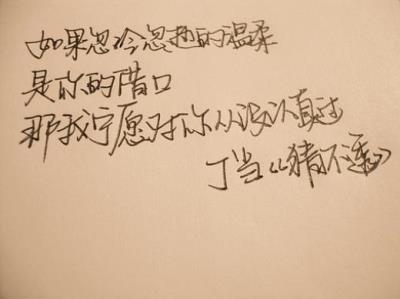 如果忽冷忽热的温柔
是你的借口
那我宁愿对你从没认真过
丁当《猜不透》